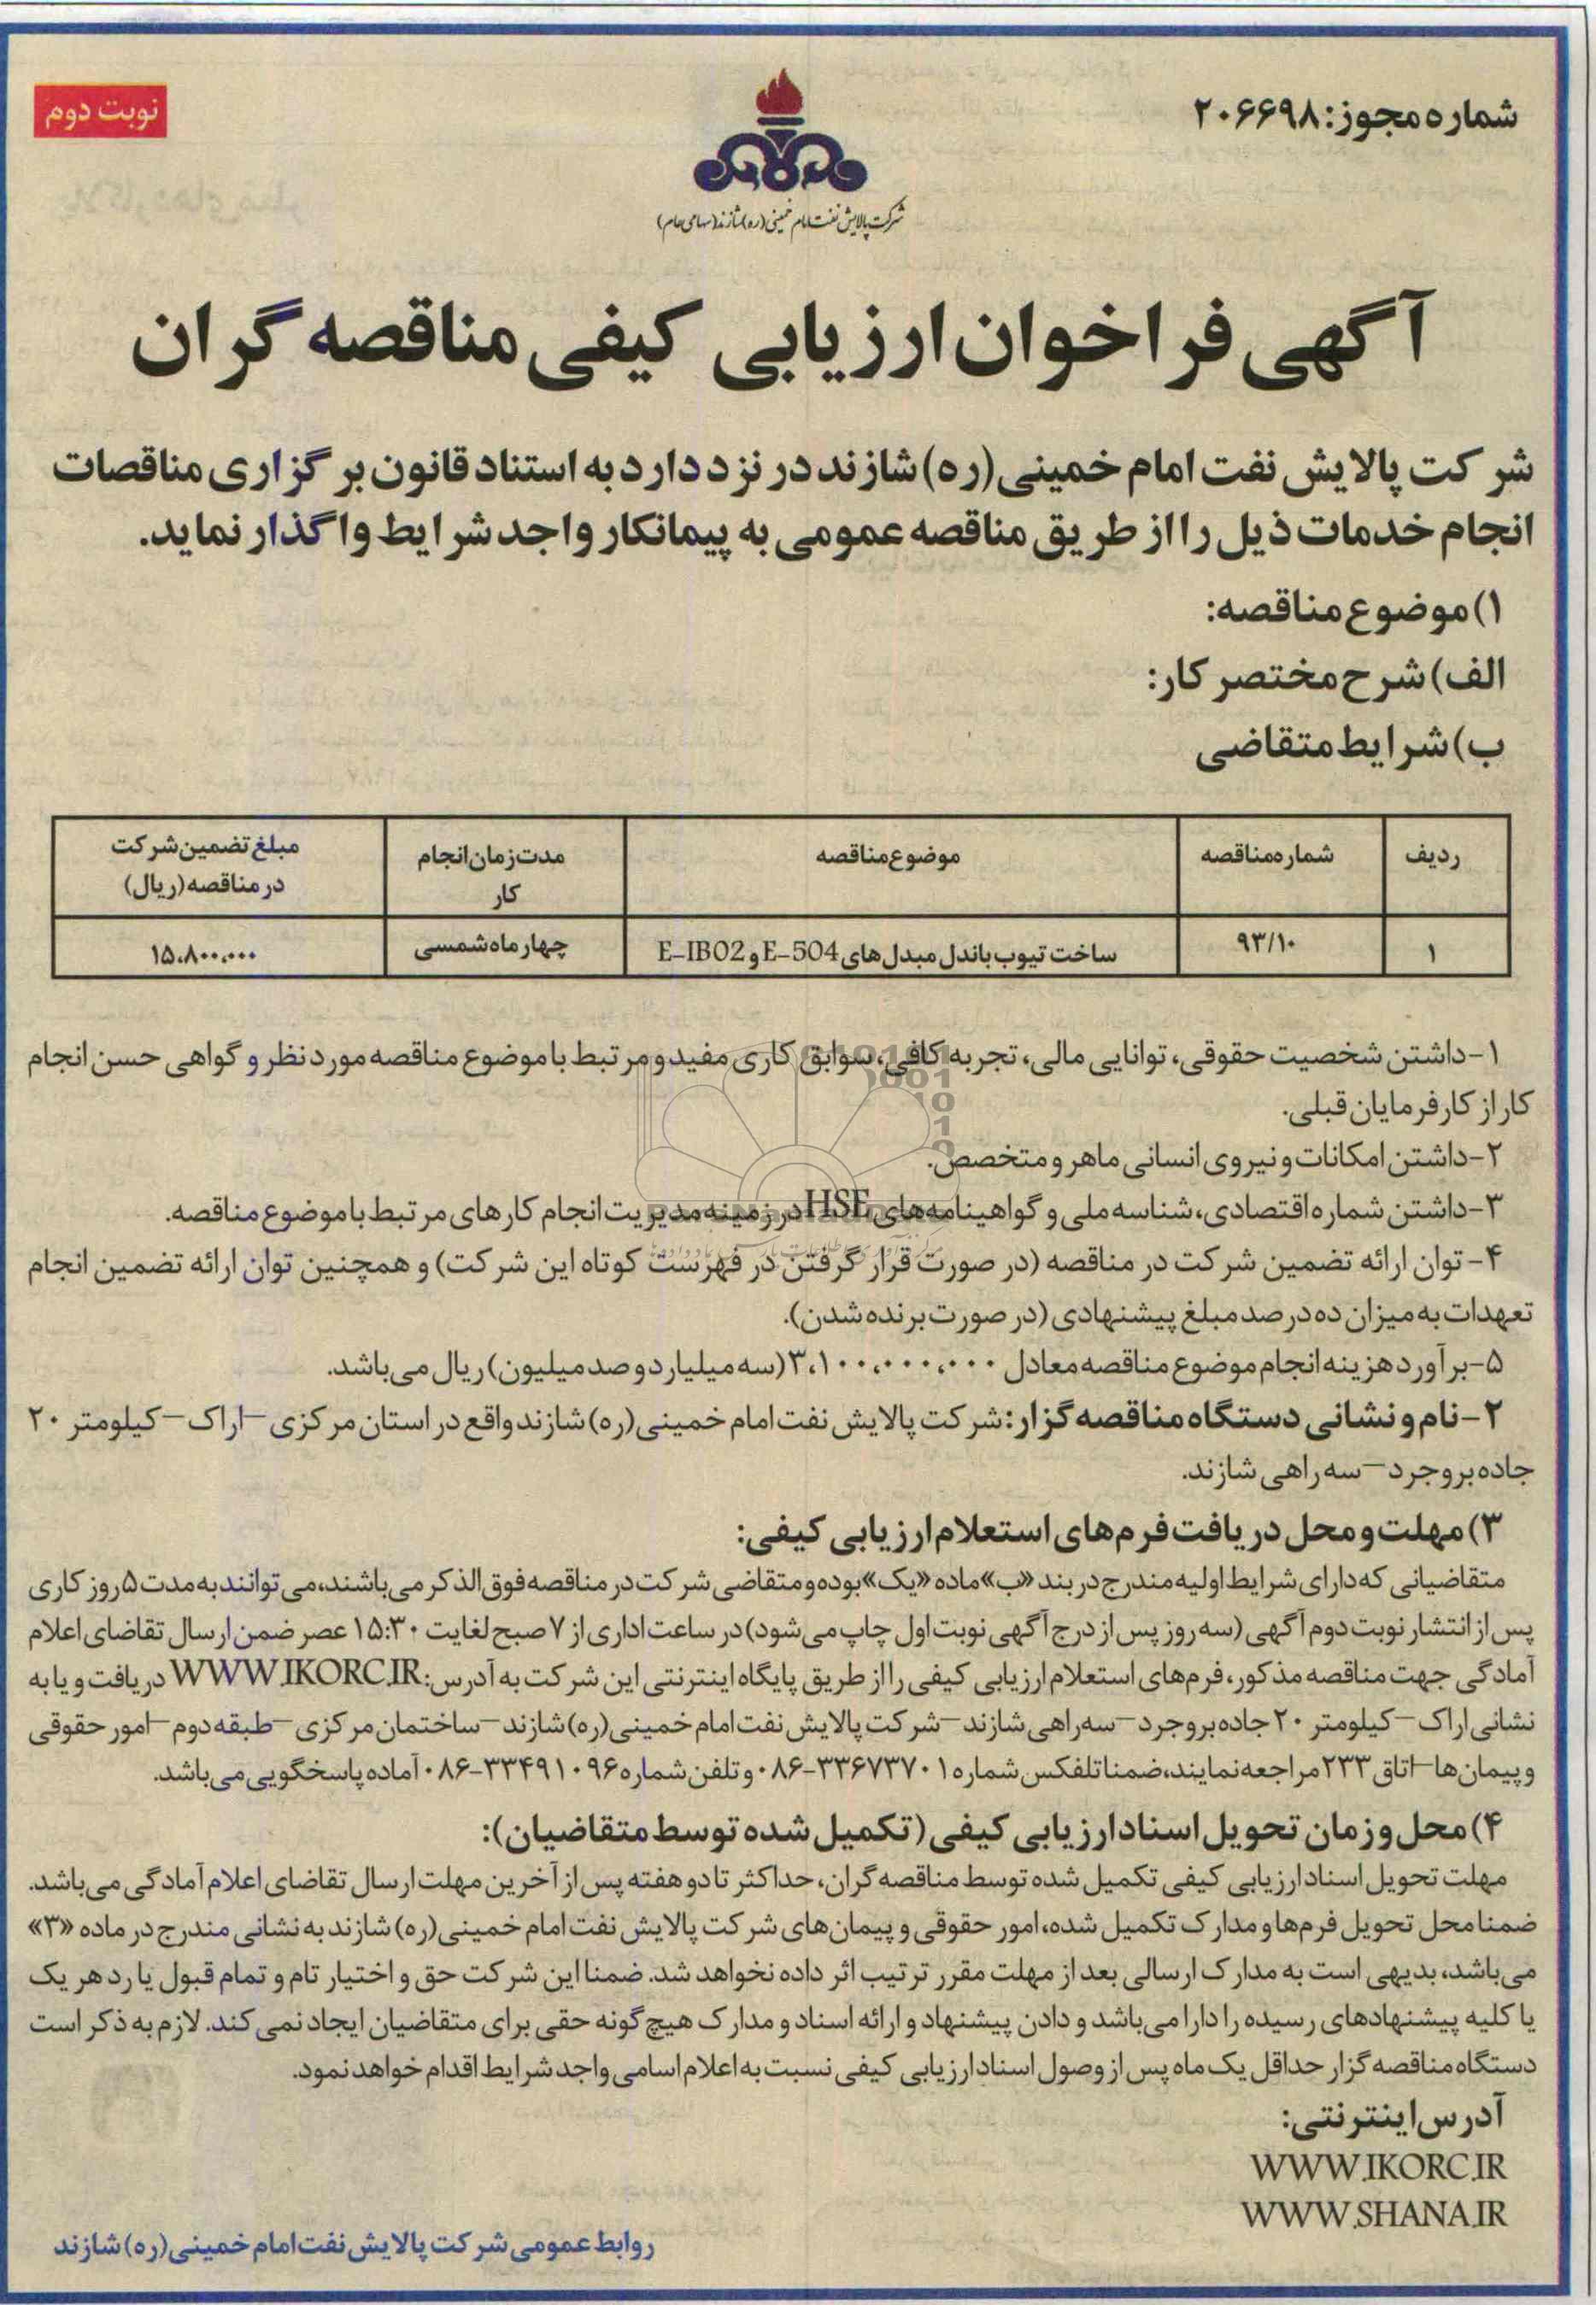 شماره مجوز: ۲۰۶۶۹۸
نوبت دوم
شرکت پالایش نفت امام خمینی (ره) شازند (سهامی عام)
آگهی فراخوان ارزیابی کیفی مناقصه گران
شرکت پالایش نفت امام خمینی (ره) شازند در نزد دارد به استناد قانون برگزاری مناقصات
انجام خدمات ذیل را از طریق مناقصه عمومی به پیمانکار واجد شرایط واگذار نماید.
۱) موضوع مناقصه:
الف) شرح مختصر کار:
ب) شرایط متقاضی
ردیف شماره مناقصه موضوع مناقصه مدت زمان انجام کار مبلغ تضمین شرکت در مناقصه (ریال)
۱ ۹۳/۱۰ ساخت تیوب باندل مبدل های E-504 و E-IB02 چهار ماه شمسی ۱۵،۸۰۰،۰۰۰
۱- داشتن شخصیت حقوقی، توانایی مالی، تجربه کافی، سوابق کاری مفید و مرتبط با موضوع مناقصه مورد نظر و گواهی حسن انجام
کار از کارفرمایان قبلی.
۲- داشتن امکانات و نیروی انسانی ماهر و متخصص.
۳- داشتن شماره اقتصادی، شناسه ملی و گواهینامه‌های HSE در زمینه مدیریت انجام کارهای مرتبط با موضوع مناقصه.
۴- توان ارائه تضمین شرکت در مناقصه (در صورت قرار گرفتن در فهرست کوتاه این شرکت) و همچنین توان ارائه تضمین انجام
تعهدات به میزان ده درصد مبلغ پیشنهادی (در صورت برنده شدن).
۵- برآورد هزینه انجام موضوع مناقصه معادل ۳،۱۰۰،۰۰۰،۰۰۰ (سه میلیارد و صد میلیون) ریال می‌باشد.
۲- نام و نشانی دستگاه مناقصه گزار: شرکت پالایش نفت امام خمینی (ره) شازند واقع در استان مرکزی – اراک – کیلومتر ۲۰
جاده بروجرد – سه راهی شازند.
۳) مهلت و محل دریافت فرم‌های استعلام ارزیابی کیفی:
متقاضیانی که دارای شرایط اولیه مندرج در بند «ب» ماده «یک» بوده و متقاضی شرکت در مناقصه فوق الذکر می‌باشند، می‌توانند به مدت ۵ روز کاری
پس از انتشار نوبت دوم آگهی (سه روز پس از درج آگهی نوبت اول چاپ می‌شود) در ساعت اداری از ۷ صبح لغایت ۱۵:۳۰ عصر ضمن ارسال تقاضای اعلام
آمادگی جهت مناقصه مذکور، فرم‌های استعلام ارزیابی کیفی را از طریق پایگاه اینترنتی این شرکت به آدرس: WWW.IKORC.IR دریافت و یا به
نشانی اراک – کیلومتر ۲۰ جاده بروجرد – سه راهی شازند – شرکت پالایش نفت امام خمینی (ره) شازند – ساختمان مرکزی – طبقه دوم – امور حقوقی
و پیمان‌ها – اتاق ۲۳۳ مراجعه نمایند، ضمنا تلفکس شماره ۳۳۶۷۳۷۰۱-۰۸۶ و تلفن شماره ۳۳۴۹۱۰۹۶-۰۸۶ آماده پاسخگویی می‌باشد.
۴) محل و زمان تحویل اسناد ارزیابی کیفی (تکمیل شده توسط متقاضیان):
مهلت تحویل اسناد ارزیابی کیفی تکمیل شده توسط مناقصه گران، حداکثر تا دو هفته پس از آخرین مهلت ارسال تقاضای اعلام آمادگی می‌باشد.
ضمنا محل تحویل فرم‌ها و مدارک تکمیل شده، امور حقوقی و پیمان‌های شرکت پالایش نفت امام خمینی (ره) شازند به نشانی مندرج در ماده «۳»
می‌باشد، بدیهی است به مدارک ارسالی بعد از مهلت مقرر ترتیب اثر داده نخواهد شد. ضمنا این شرکت حق و اختیار تام و تمام قبول یا رد هر یک
یا کلیه پیشنهادهای رسیده را دارا می‌باشد و دادن پیشنهاد و ارائه اسناد و مدارک هیچ گونه حقی برای متقاضیان ایجاد نمی‌کند. لازم به ذکر است
دستگاه مناقصه گزار حداقل یک ماه پس از وصول اسناد ارزیابی کیفی نسبت به اعلام اسامی واجد شرایط اقدام خواهد نمود.
آدرس اینترنتی:
WWW.IKORC.IR
WWW.SHANA.IR
روابط عمومی شرکت پالایش نفت امام خمینی (ره) شازند